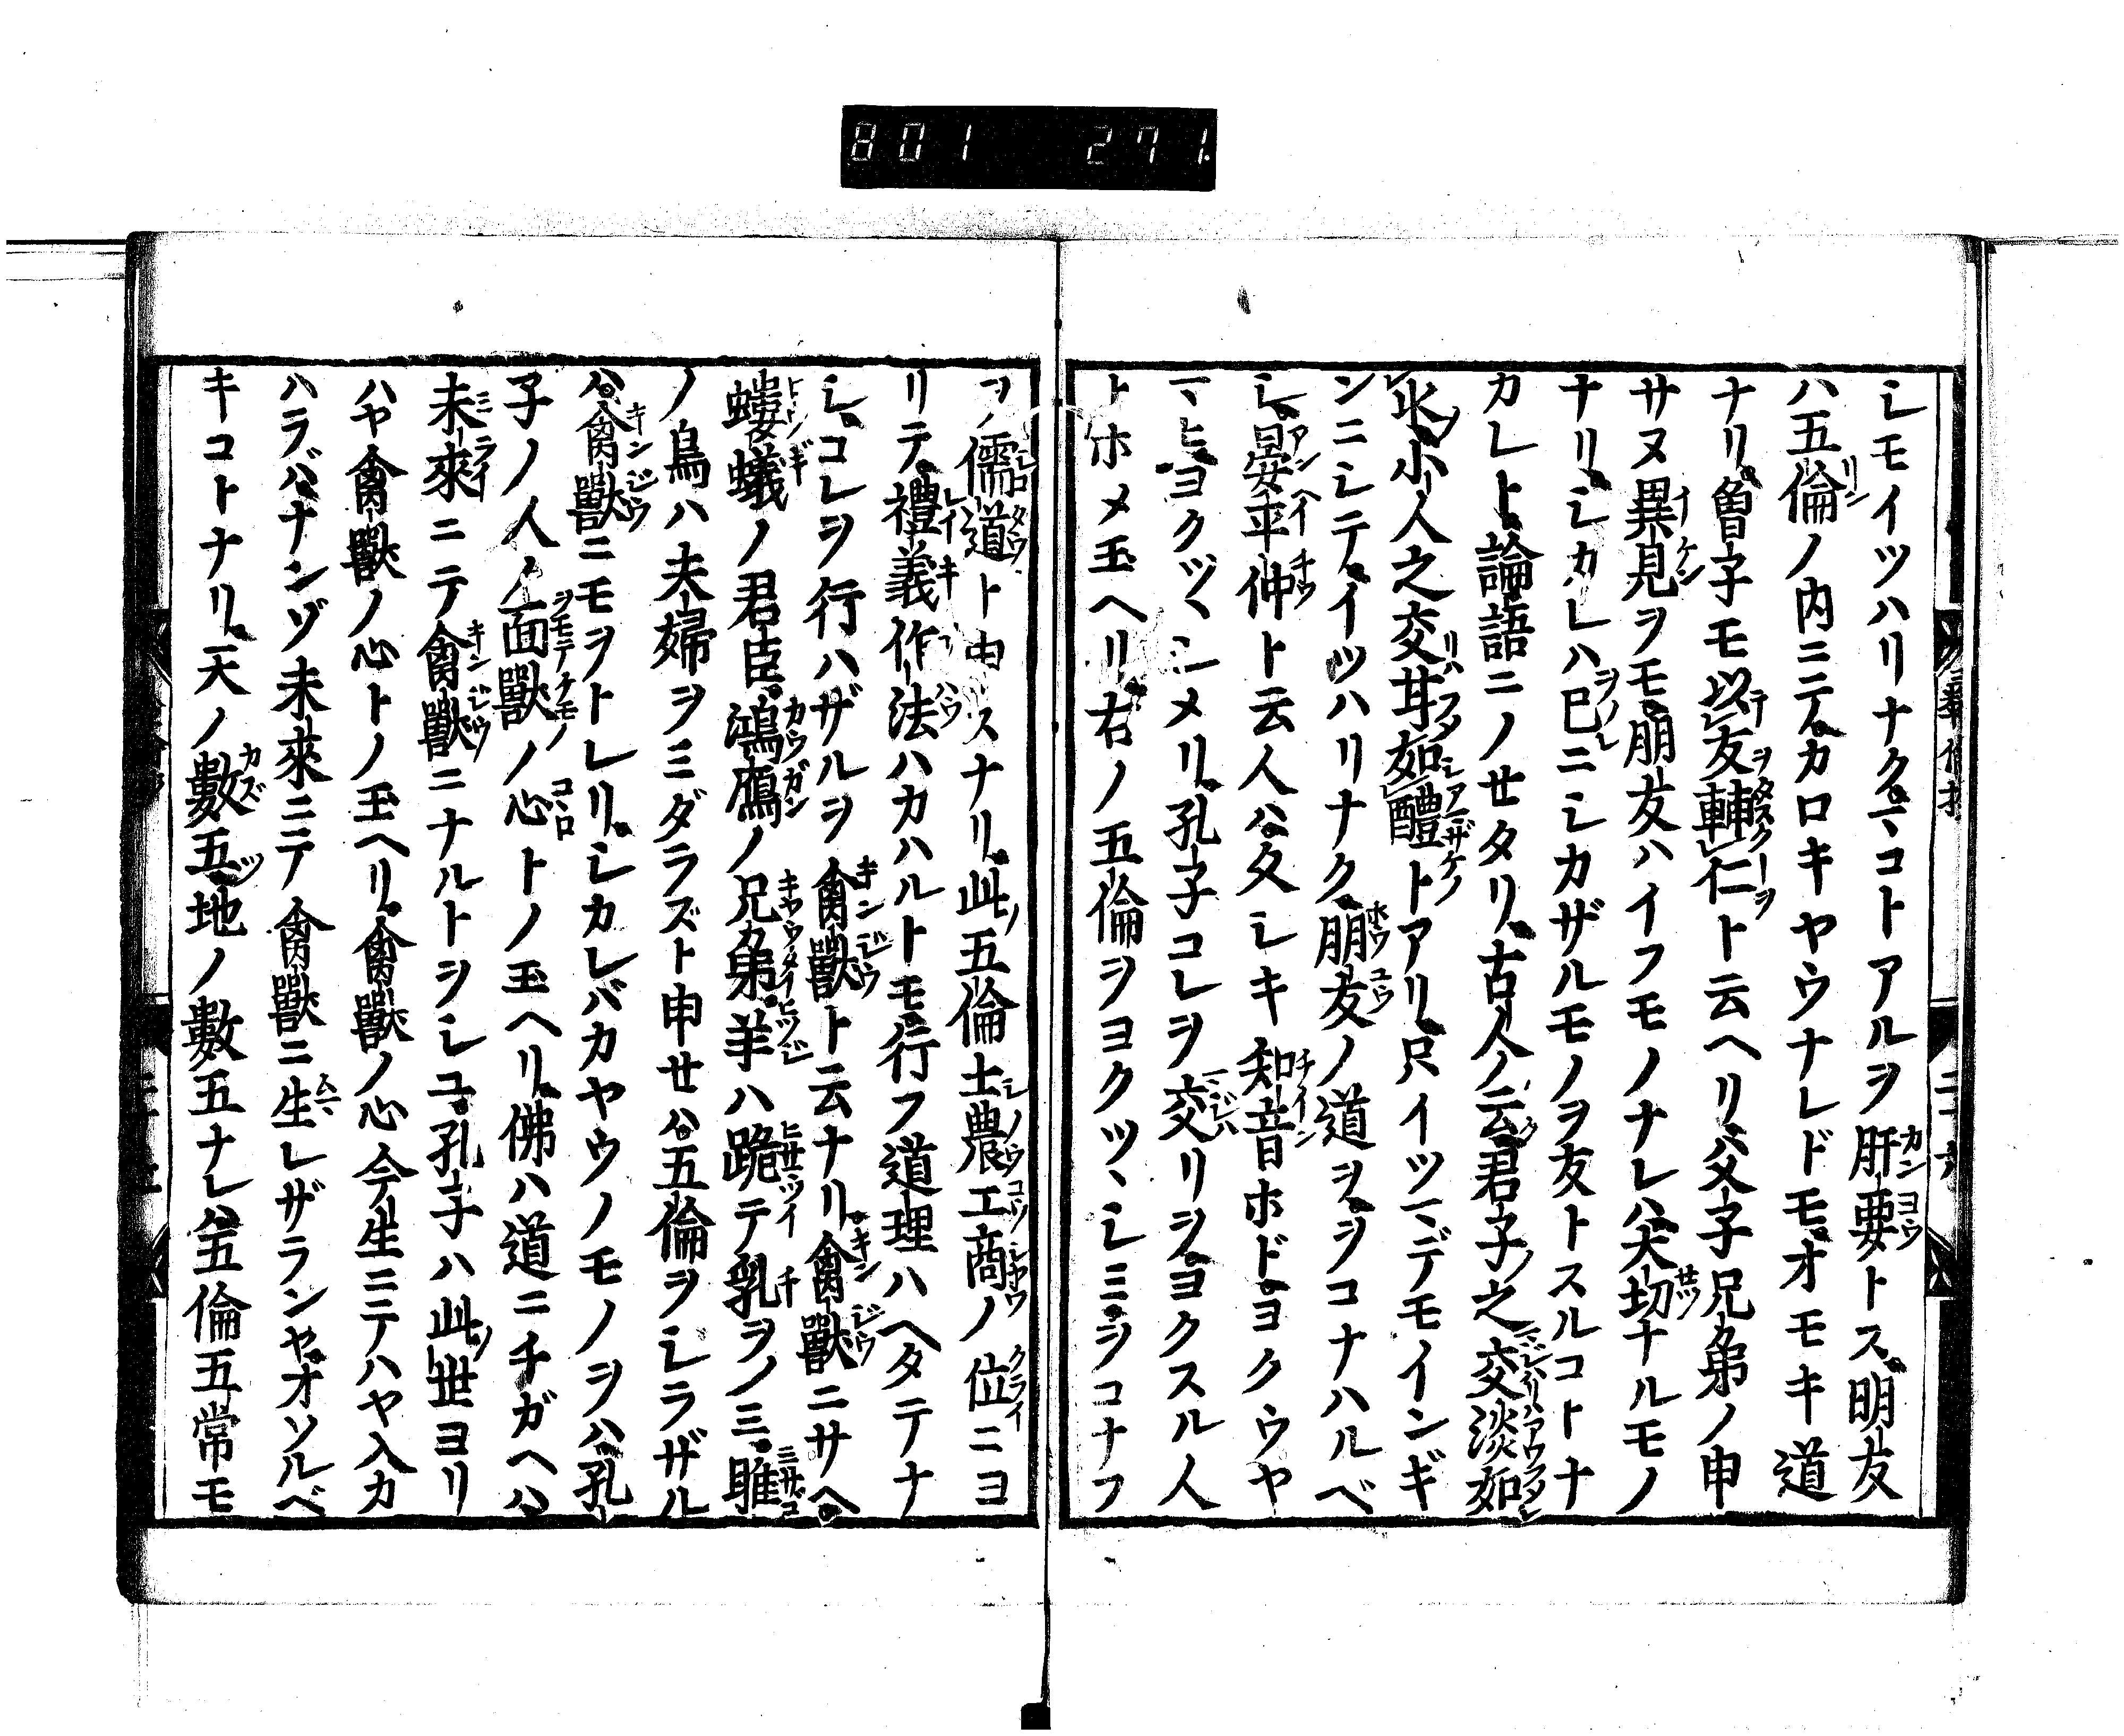 801 271
シモイツハリナク、マコトアルヲ肝要トス、明友
ハ五倫ノ内ニテ、カロキヤウナレドモ、オモキ道
ナリ、曾子モ以友輔仁ト云ヘリ、父子兄弟ノ申
サヌ異見ヲモ、朋友ハイフモノナレハ、大切ナルモノ
ナリ、シカレハ已ニシカザルモノヲ友トスルコトナ
カレト、論語ニノせタリ、古人ノ云、君子之交淡如
水、小人之交甘如醴トアリ、只イツマデモインギ
ンニシテ、イツハリナク、朋友ノ道ヲ、ヲコナハルベ
シ、晏平仲ト云人ハ、久シキ知音ホド、ヨクウヤ
マヒ、ヨクツヽシメリ、孔子コレヲ交リヲ、ヨクスル人
トホメ玉ヘリ、右ノ五倫ヲヨクツヽシミ、ヲコナフ
ヲ、儒道ト申スナリ、此五倫士農工商ノ位ニヨ
リテ、禮義作法ハカハルトモ、行フ道理ハヘタテナ
シ、コレヲ行ハザルヲ禽獸ト云ナリ、禽獸ニサヘ、
螻蟻ノ君臣、鴻鴈ノ兄弟、羊ハ跪テ乳ヲノミ、雎
ノ鳥ハ夫婦ヲミダラズト申せハ、五倫ヲシラザル
ハ、禽獸ニモヲトレリ、シカレバカヤウノモノヲハ、孔
子ノ人ノ面獸ノ心トノ玉ヘリ、佛ハ道ニチガヘハ
未來ニテ禽獸ニナルトヲシユ、孔子ハ此世ヨリ
ハヤ禽獸ノ心トノ玉ヘリ、禽獸ノ心今生ニテハヤ入カ
ハラバ、ナンゾ未來ニテ禽獸ニ生レザランヤ、オソルベ
キコトナリ、天ノ數五ツ地ノ數五ナレハ、五倫五常モ